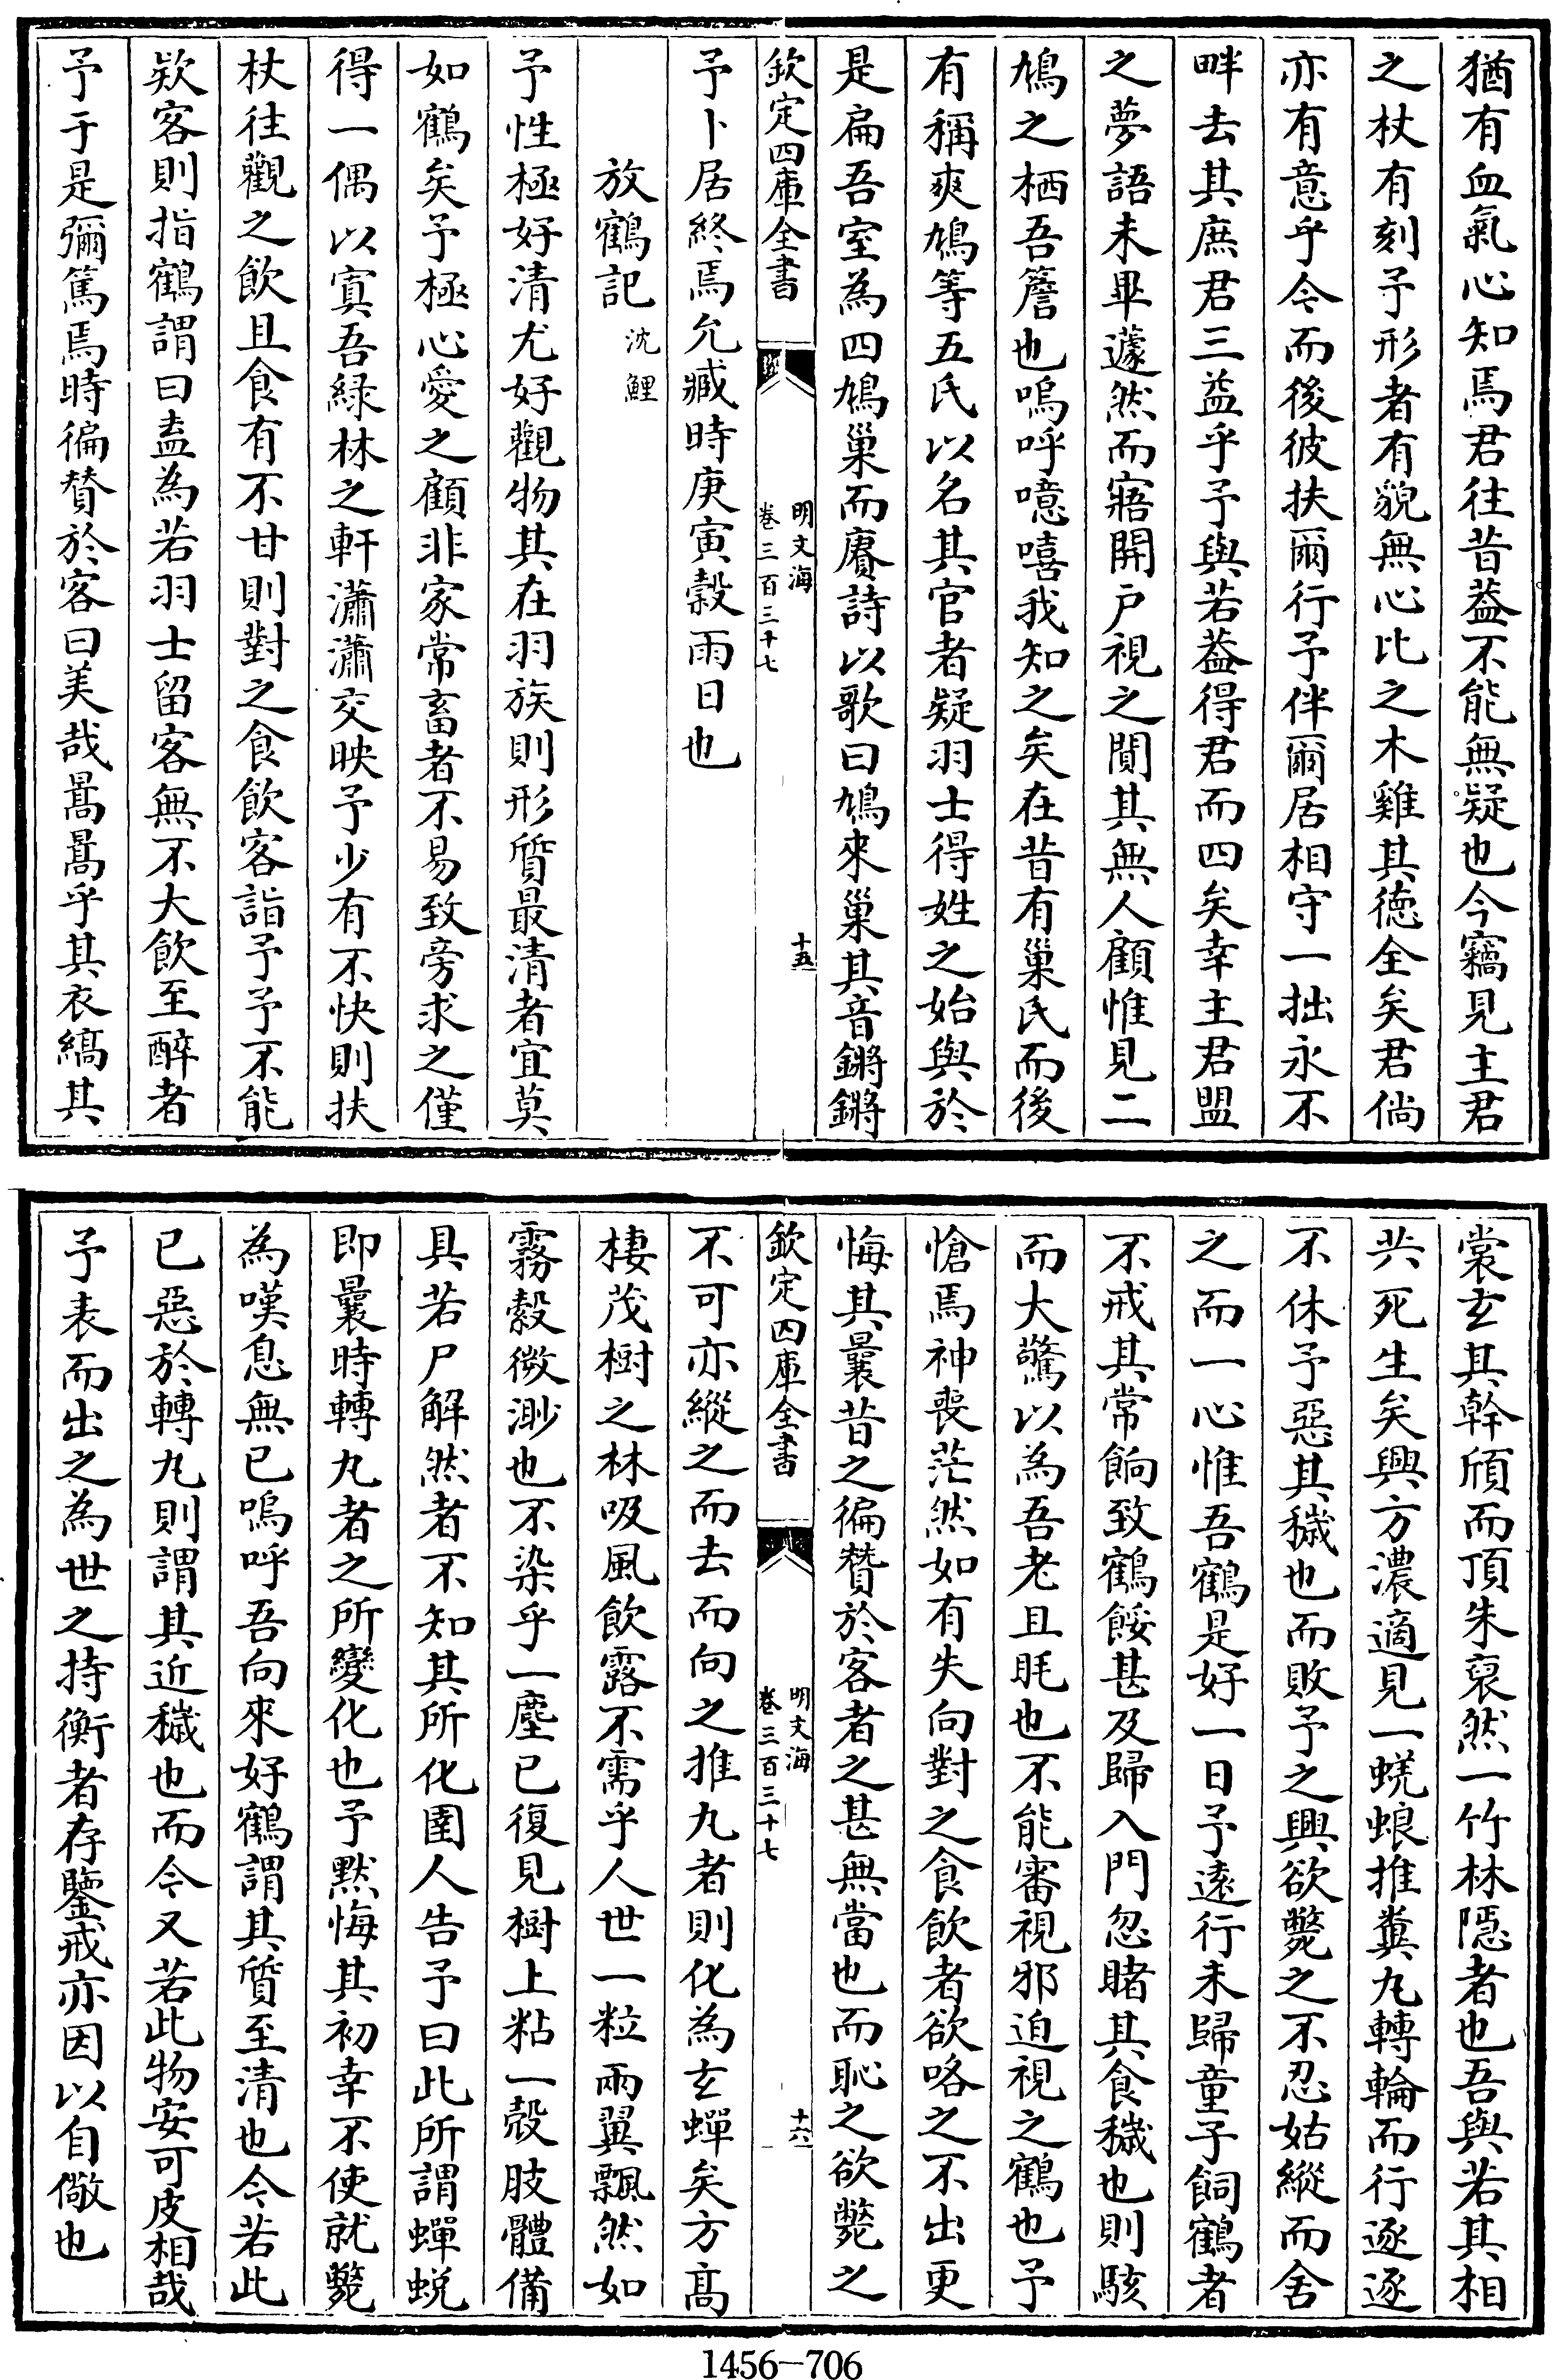 猶有血氣心知焉君往昔葢不能無疑也今竊見主君
之杖有刻予形者有貌無心比之木雞其徳全矣君倘
亦有意乎今而後彼扶爾行予伴爾居相守一拙永不
畔去其庶君三益乎予與若葢得君而四矣幸主君盟
之夢語未畢遽然而寤開户視之閴其無人顧惟見二
鳩之栖吾簷也嗚呼噫嘻我知之矣在昔有巢氏而後
有稱爽鳩等五氏以名其官者疑羽士得姓之始與於
是扁吾室為四鳩巢而賡詩以歌曰鳩來巢其音鏘鏘
欽定四庫全書
明文海
卷三百三十七
十五
予卜居終焉允臧時庚寅穀雨日也
放鶴記 沈鯉
予性極好清尤好觀物其在羽族則形質最清者宜莫
如鶴矣予極心愛之顧非家常畜者不易致旁求之僅
得一偶以寘吾緑林之軒瀟瀟交映予少有不快則扶
杖往觀之飲且食有不甘則對之食飲客詣予予不能
欵客則指鶴謂曰盍為若羽士留客無不大飲至醉者
予于是彌篤焉時徧賛於客曰美哉暠暠乎其衣縞其
裳玄其幹頎而頂朱裒然一竹林隱者也吾與若其相
共死生矣興方濃適見一蜣蜋推糞丸轉輪而行逐逐
不休予惡其穢也而敗予之興欲斃之不忍姑縱而舍
之而一心惟吾鶴是好一日予逺行未歸童子飼鶴者
不戒其常餉致鶴餒甚及歸入門忽睹其食穢也則駭
而大驚以為吾老且眊也不能審視邪迫視之鶴也予
愴焉神喪茫然如有失向對之食飲者欲咯之不出更
悔其曩昔之徧賛於客者之甚無當也而恥之欲斃之
欽定四庫全書
明文海
卷三百三十七
十六
不可亦縱之而去而向之推丸者則化為玄蟬矣方髙
棲茂樹之林吸風飲露不需乎人世一粒兩翼飄然如
霧縠微渺也不染乎一塵已復見樹上粘一殻肢體備
具若尸解然者不知其所化圉人告予曰此所謂蟬蛻
即曩時轉丸者之所變化也予黙悔其初幸不使就斃
為嘆息無已嗚呼吾向來好鶴謂其質至清也今若此
已惡於轉丸則謂其近穢也而今又若此物安可皮相哉
予表而出之為世之持衡者存鑒戒亦因以自儆也
1456—706